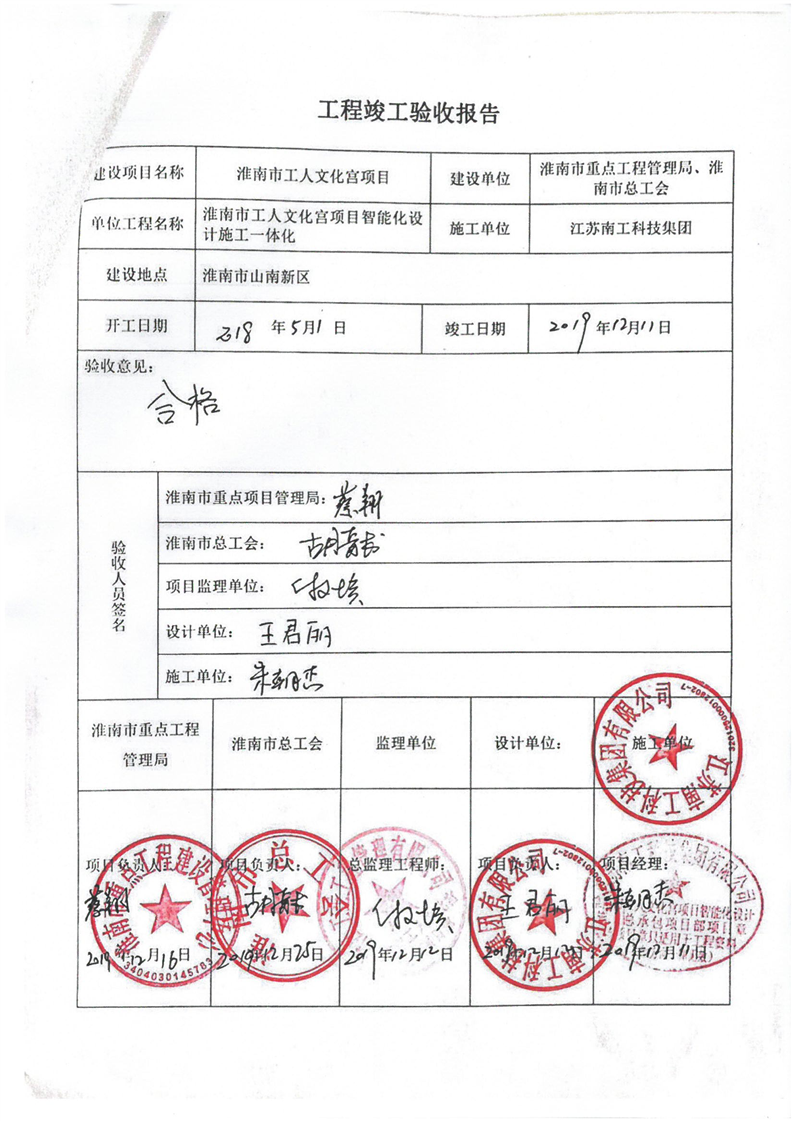 工程竣工验收报告
建设项目名称 淮南市工人文化宫项目 建设单位 淮南市重点工程管理局、淮
南市总工会
单位工程名称 淮南市工人文化宫项目智能化设
计施工一体化 施工单位 江苏南工科技集团
建设地点 淮南市山南新区
开工日期 2018 年 5月1 日 竣工日期 2019 年12月11日
验收意见:
合格
验收人员签名
淮南市重点项目管理局: 蔡翔
淮南市总工会:
项目监理单位:
设计单位: 王君丽
施工单位: 朱朝杰
淮南市重点工程
管理局
淮南市总工会
监理单位
设计单位:
施工单位
江苏南工科技集团有限公司
项目负责人:
蔡翔
2019年12月16日
3404030145763
项目负责人:
2019年12月25日
淮南市总工会
总监理工程师:
2019年12月12日
项目负责人:
王君丽
江苏南工科技集团有限公司
项目经理:
朱朝杰
2019年12月11日